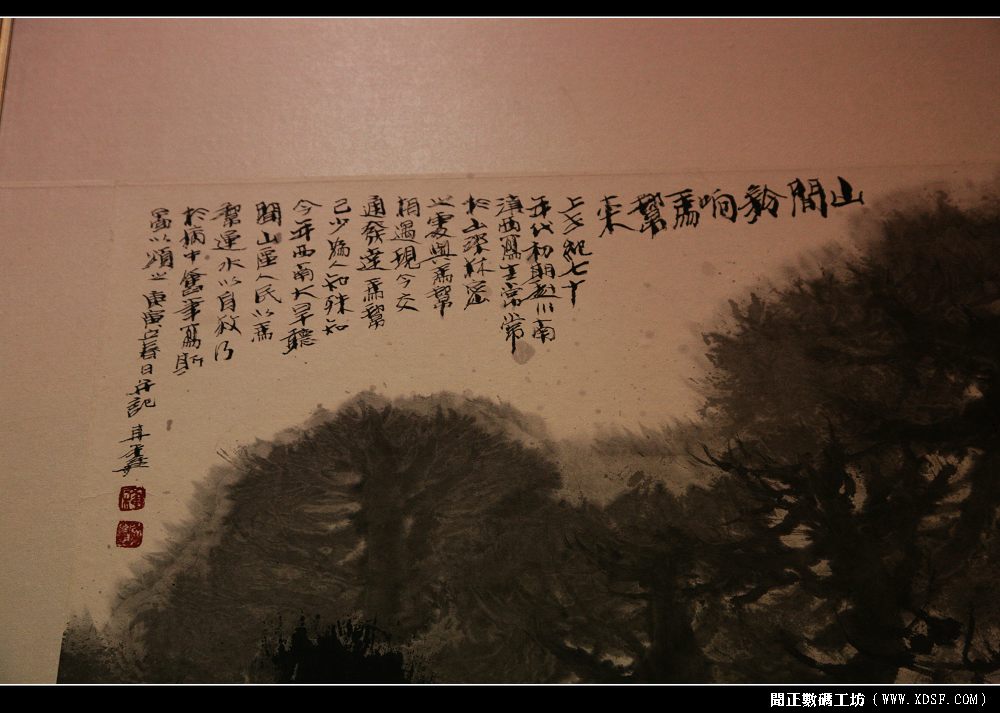 山間鈴响馬幫来
上世紀七十
年代初期赴川南
滇西寫生常常
於山深林密
之處與馬幫
相遇現今交
通發達馬幫
已少為人知殊知
今年西南大旱聽
聞山區人民以馬
幫運水以自救乃
於病中奮筆寫斯
畫以頌之 庚寅之春日并記
聞正數碼工坊（WWW.XDSF.COM）